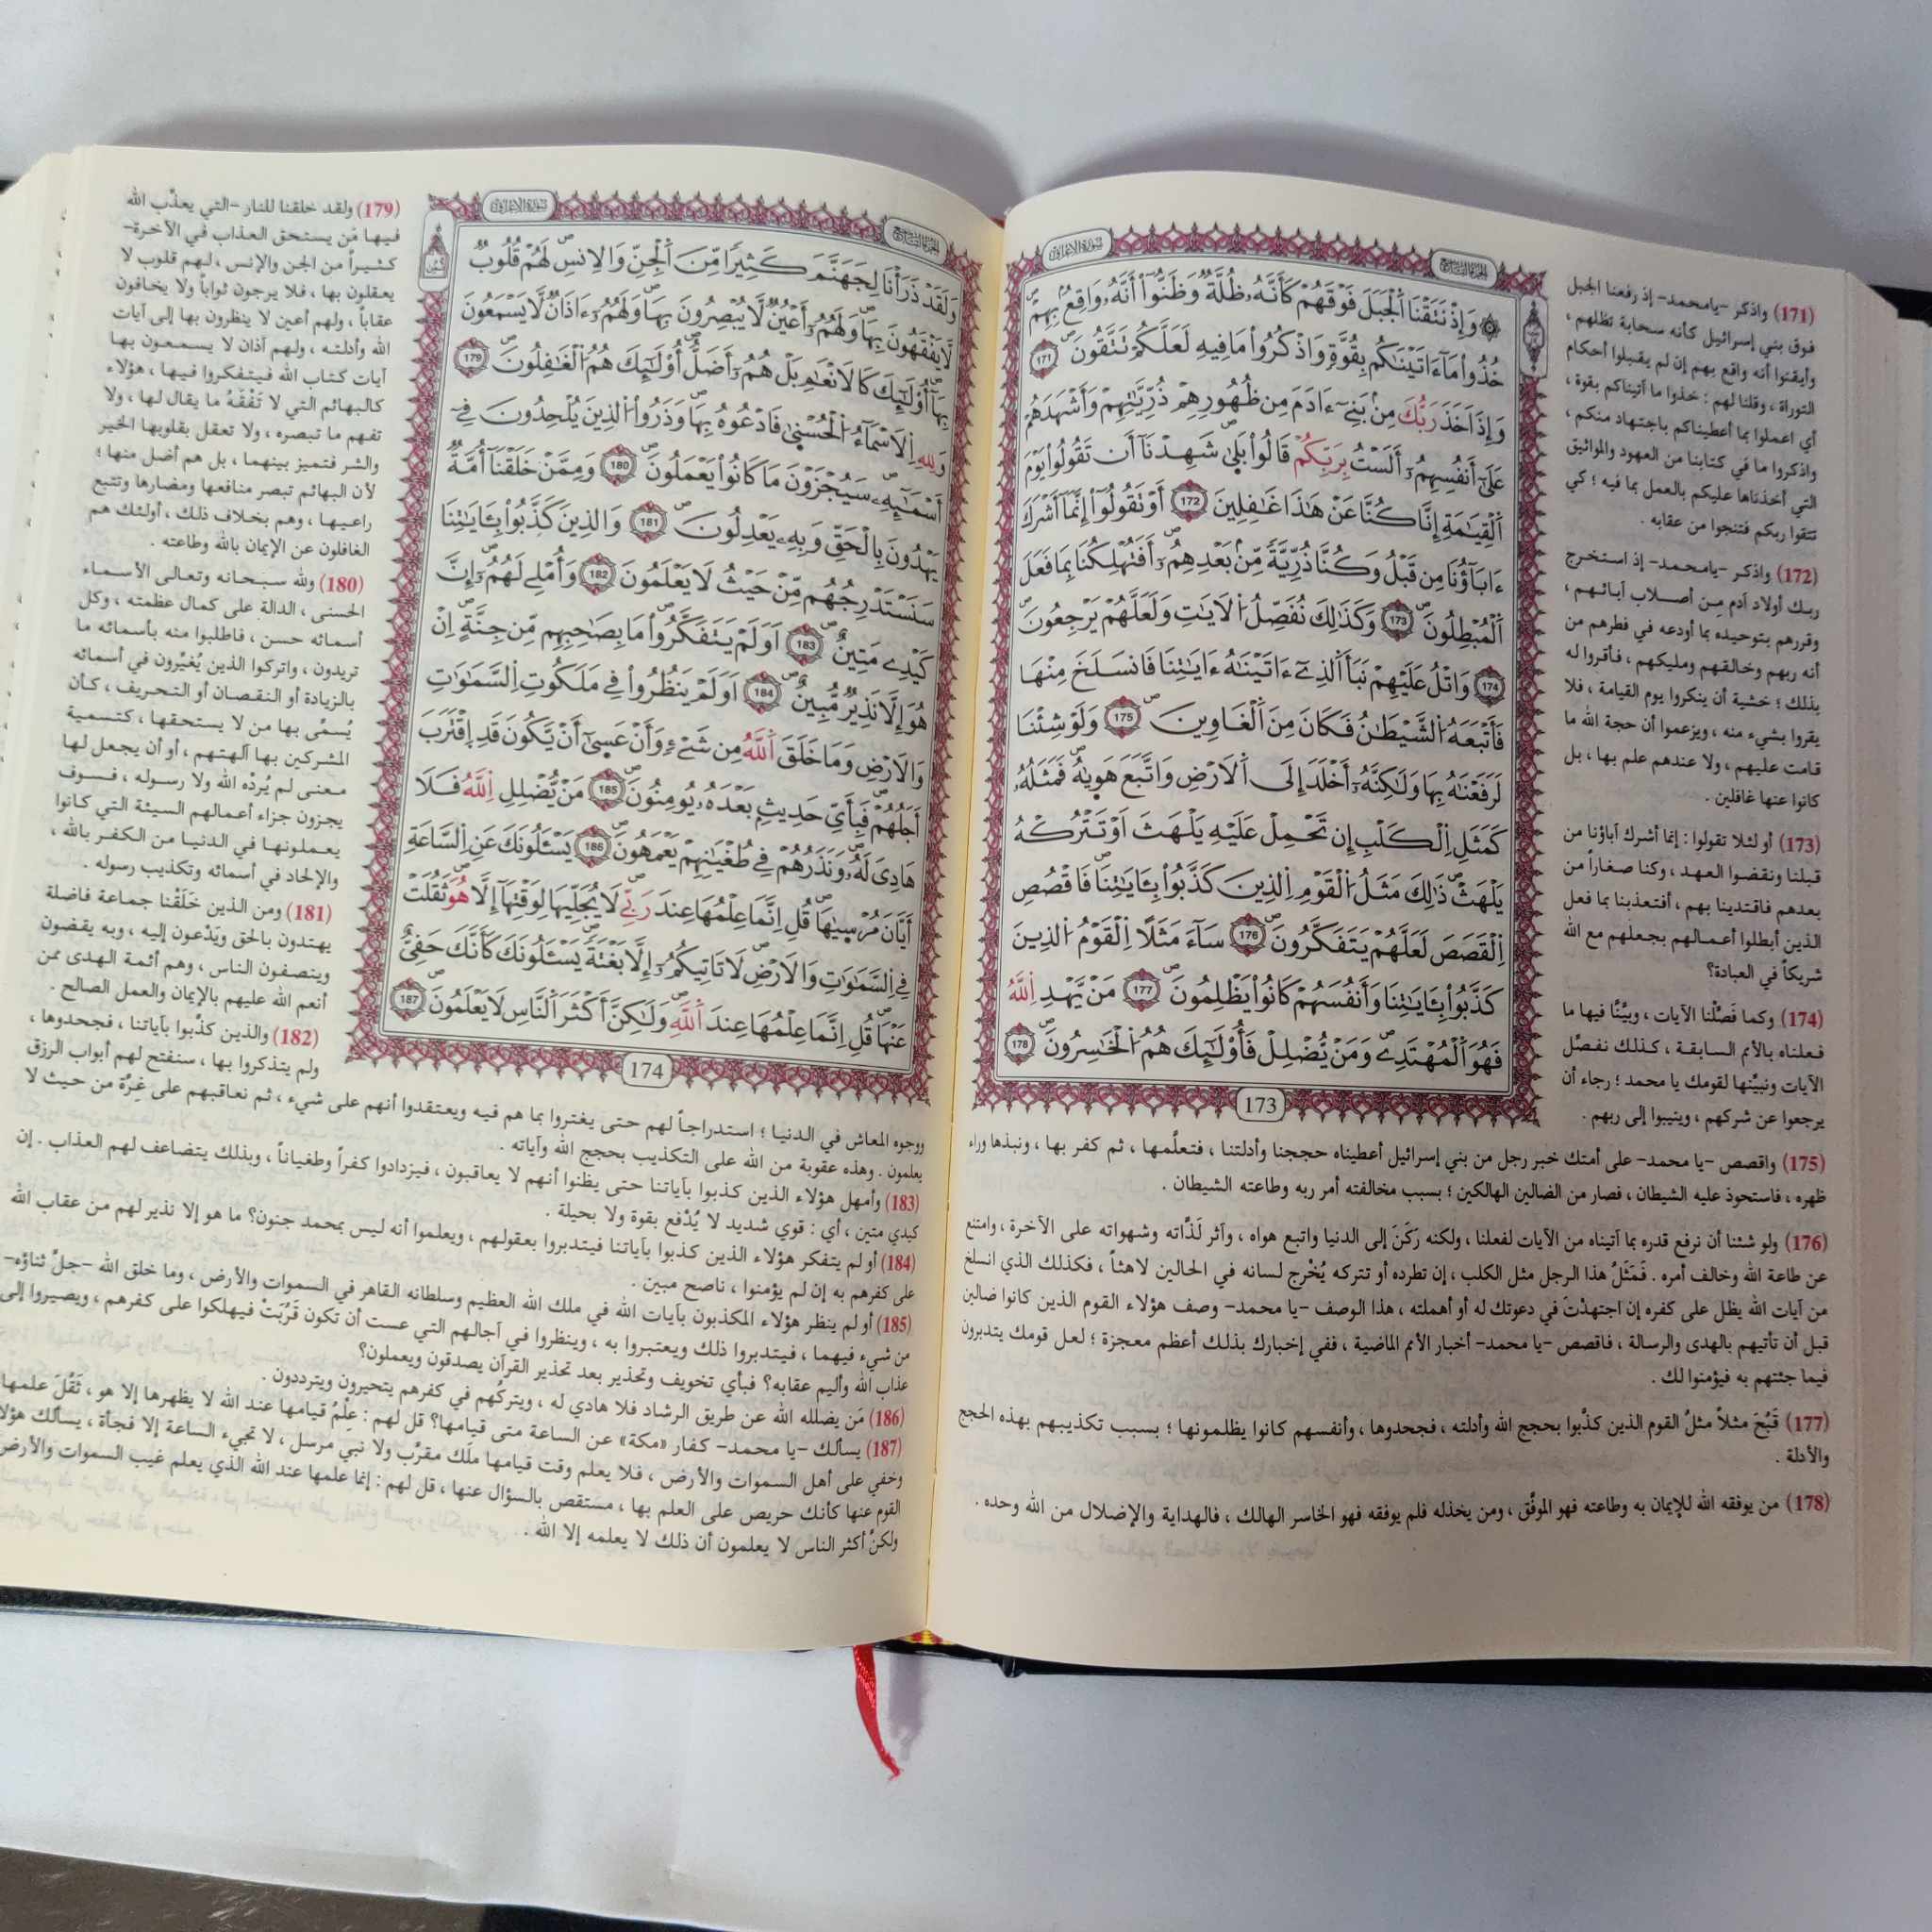 سورة الأعراف
الجزء التاسع
۞ وَإِذْ نَتَقْنَا اَ۬لْجَبَلَ فَوْقَهُمْ كَأَنَّهُۥ ظُلَّةٞ وَظَنُّوٓاْ أَنَّهُۥ وَاقِعُۢ بِهِمْ
خُذُواْ مَآ ءَاتَيْنَٰكُم بِقُوَّةٖ وَاذْكُرُواْ مَا فِيهِ لَعَلَّكُمْ تَتَّقُونَ 171
وَإِذَ اَخَذَ رَبُّكَ مِنۢ بَنِےٓ ءَادَمَ مِن ظُهُورِهِمْ ذُرِّيَّٰتِهِمْ وَأَشْهَدَهُمْ
عَلَىٰٓ أَنفُسِهِمُۥٓ أَلَسْتُ بِرَبِّكُمْ قَالُواْ بَلَىٰ شَهِدْنَآ أَن تَقُولُواْ يَوْمَ
اَ۬لْقِيَٰمَةِ إِنَّا كُنَّا عَنْ هَٰذَا غَٰفِلِينَ 172 أَوْ تَقُولُوٓاْ إِنَّمَآ أَشْرَكَ
ءَابَآؤُنَا مِن قَبْلُ وَكُنَّا ذُرِّيَّةٗ مِّنۢ بَعْدِهِمُۥٓ أَفَتُهْلِكُنَا بِمَا فَعَلَ
اَ۬لْمُبْطِلُونَ 173 وَكَذَٰلِكَ نُفَصِّلُ اُ۬لَايَٰتِ وَلَعَلَّهُمْ يَرْجِعُونَ
174 وَاتْلُ عَلَيْهِمْ نَبَأَ اَ۬لذِےٓ ءَاتَيْنَٰهُ ءَايَٰتِنَا فَانسَلَخَ مِنْهَا
فَأَتْبَعَهُ اُ۬لشَّيْطَٰنُ فَكَانَ مِنَ اَ۬لْغَاوِينَ 175 وَلَوْ شِئْنَا
لَرَفَعْنَٰهُ بِهَا وَلَٰكِنَّهُۥٓ أَخْلَدَ إِلَى اَ۬لَارْضِ وَاتَّبَعَ هَوِيٰهُ فَمَثَلُهُۥ
كَمَثَلِ اِ۬لْكَلْبِ إِن تَحْمِلْ عَلَيْهِ يَلْهَثَ اَوْ تَتْرُكْهُ
يَلْهَثْ ذَٰلِكَ مَثَلُ اُ۬لْقَوْمِ اِ۬لذِينَ كَذَّبُواْ بِـَٔايَٰتِنَا فَاقْصُصِ
اِ۬لْقَصَصَ لَعَلَّهُمْ يَتَفَكَّرُونَ 176 سَآءَ مَثَلًا اِ۬لْقَوْمُ اُ۬لذِينَ
كَذَّبُواْ بِـَٔايَٰتِنَا وَأَنفُسَهُمْ كَانُواْ يَظْلِمُونَ 177 مَنْ يَّهْدِ اِ۬للَّهُ
فَهُوَ اَ۬لْمُهْتَدِے وَمَنْ يُّضْلِلْ فَأُوْلَٰٓئِكَ هُمُ اُ۬لْخَٰسِرُونَ 178
173
(171) واذكر -يامحمد- إذ رفعنا الجبل
فوق بني إسرائيل كأنه سحابة تظلهم ،
وأيقنوا أنه واقع بهم إن لم يقبلوا أحكام
التوراة ، وقلنا لهم : خذوا ما آتيناكم بقوة ،
أي اعملوا بما أعطيناكم باجتهاد منكم ،
واذكروا ما في كتابنا من العهود والمواثيق
التي أخذناها عليكم بالعمل بما فيه ؛ كي
تتقوا ربكم فتنجوا من عقابه .
(172) واذكر -يامحمد- إذ استخرج
ربك أولاد آدم مِن أصلاب آبائهم ،
وقررهم بتوحيده بما أودعه في فطرهم من
أنه ربهم وخالقهم ومليكهم ، فأقروا له
بذلك ؛ خشية أن ينكروا يوم القيامة ، فلا
يقروا بشيء منه ، ويزعموا أن حجة الله ما
قامت عليهم ، ولا عندهم علم بها ، بل
كانوا عنها غافلين .
(173) أو لئلا تقولوا : إنما أشرك آباؤنا من
قبلنا ونقضوا العهد ، وكنا صغاراً من
بعدهم فاقتدينا بهم ، أفتعذبنا بما فعل
الذين أبطلوا أعمالهم بجعلهم مع الله
شريكاً في العبادة؟
(174) وكما فَصَّلْنا الآيات ، وبيَّنَّا فيها ما
فعلناه بالأمم السابقة ، كذلك نفصِّل
الآيات ونبيِّنها لقومك يا محمد ؛ رجاء أن
يرجعوا عن شركهم ، وينيبوا إلى ربهم .
(175) واقصص -يا محمد- على أمتك خبر رجل من بني إسرائيل أعطيناه حججنا وأدلتنا ، فتعلَّمها ، ثم كفر بها ، ونبذها وراء
ظهره ، فاستحوذ عليه الشيطان ، فصار من الضالين الهالكين ؛ بسبب مخالفته أمر ربه وطاعته الشيطان .
(176) ولو شئنا أن نرفع قدره بما آتيناه من الآيات لفعلنا ، ولكنه رَكَنَ إلى الدنيا واتبع هواه ، وآثر لَذَّاته وشهواته على الآخرة ، وامتنع
عن طاعة الله وخالف أمره . فَمَثَلُ هذا الرجل مثل الكلب ، إن تطرده أو تتركه يُخْرج لسانه في الحالين لاهثاً ، فكذلك الذي انسلخ
من آيات الله يظل على كفره إن اجتهدْتَ في دعوتك له أو أهملته ، هذا الوصف -يا محمد- وصف هؤلاء القوم الذين كانوا ضالين
قبل أن تأتيهم بالهدى والرسالة ، فاقصص -يا محمد- أخبار الأمم الماضية ، ففي إخبارك بذلك أعظم معجزة ؛ لعل قومك يتدبرون
فيما جئتهم به فيؤمنوا لك .
(177) قَبُحَ مثلاً مثلُ القوم الذين كذَّبوا بحجج الله وأدلته ، فجحدوها ، وأنفسهم كانوا يظلمونها ؛ بسبب تكذيبهم بهذه الحجج
والأدلة .
(178) من يوفقه الله للإيمان به وطاعته فهو الموفَّق ، ومن يخذله فلم يوفقه فهو الخاسر الهالك ، فالهداية والإضلال من الله وحده .
الجزء التاسع
سورة الأعراف
وَلَقَدْ ذَرَأْنَا لِجَهَنَّمَ كَثِيرٗا مِّنَ اَ۬لْجِنِّ وَالِانسِ لَهُمْ قُلُوبٞ
لَّا يَفْقَهُونَ بِهَا وَلَهُمُۥٓ أَعْيُنٞ لَّا يُبْصِرُونَ بِهَا وَلَهُمُۥٓ ءَاذَانٞ لَّا يَسْمَعُونَ
بِهَآ أُوْلَٰٓئِكَ كَالَانْعَٰمِ بَلْ هُمُۥٓ أَضَلُّ أُوْلَٰٓئِكَ هُمُ اُ۬لْغَٰفِلُونَ 179
وَلِلهِ اِ۬لَاسْمَآءُ اُ۬لْحُسْنَىٰ فَادْعُوهُ بِهَا وَذَرُواْ اُ۬لذِينَ يُلْحِدُونَ فِےٓ
أَسْمَٰٓئِهِۦ سَيُجْزَوْنَ مَا كَانُواْ يَعْمَلُونَ 180 وَمِمَّنْ خَلَقْنَآ أُمَّةٞ
يَهْدُونَ بِالْحَقِّ وَبِهِۦ يَعْدِلُونَ 181 وَالذِينَ كَذَّبُواْ بِـَٔايَٰتِنَا
سَنَسْتَدْرِجُهُم مِّنْ حَيْثُ لَا يَعْلَمُونَ 182 وَأُمْلِے لَهُمُۥٓ إِنَّ
كَيْدِے مَتِينٌ 183 اَوَلَمْ يَتَفَكَّرُواْ مَا بِصَاحِبِهِم مِّن جِنَّةٍ اِنْ
هُوَ إِلَّا نَذِيرٞ مُّبِينٌ 184 اَوَلَمْ يَنظُرُواْ فِے مَلَكُوتِ اِ۬لسَّمَٰوَٰتِ
وَالَارْضِ وَمَا خَلَقَ اَ۬للَّهُ مِن شَےْءٖ وَأَنْ عَسَىٰٓ أَنْ يَّكُونَ قَدِ اِ۪قْتَرَبَ
أَجَلُهُمْ فَبِأَيِّ حَدِيثِۢ بَعْدَهُۥ يُومِنُونَ 185 مَنْ يُّضْلِلِ اِ۬للَّهُ فَلَا
هَادِيَ لَهُۥ وَنَذَرُهُمْ فِے طُغْيَٰنِهِمْ يَعْمَهُونَ 186 يَسْـَٔلُونَكَ عَنِ اِ۬لسَّاعَةِ
أَيَّانَ مُرْسٜيٰهَا قُلِ اِنَّمَا عِلْمُهَا عِندَ رَبِّے لَا يُجَلِّيهَا لِوَقْتِهَآ إِلَّا هُوَ ثَقُلَتْ
فِے اِ۬لسَّمَٰوَٰتِ وَالَارْضِ لَا تَاتِيكُمُۥٓ إِلَّا بَغْتَةٗ يَسْـَٔلُونَكَ كَأَنَّكَ حَفِيٌّ
عَنْهَا قُلِ اِنَّمَا عِلْمُهَا عِندَ اَ۬للَّهِ وَلَٰكِنَّ أَكْثَرَ اَ۬لنَّاسِ لَا يَعْلَمُونَ 187
174
(179) ولقد خلقنا للنار -التي يعذِّب الله
فيها مَن يستحق العذاب في الآخرة-
كثيراً من الجن والإنس ، لهم قلوب لا
يعقلون بها ، فلا يرجون ثواباً ولا يخافون
عقاباً ، ولهم أعين لا ينظرون بها إلى آيات
الله وأدلته ، ولهم آذان لا يسمعون بها
آيات كتاب الله فيتفكروا فيها ، هؤلاء
كالبهائم التي لا تَفْقَهُ ما يقال لها ، ولا
تفهم ما تبصره ، ولا تعقل بقلوبها الخير
والشر فتميز بينهما ، بل هم أضل منها ؛
لأن البهائم تبصر منافعها ومضارها وتتبع
راعيها ، وهم بخلاف ذلك ، أولئك هم
الغافلون عن الإيمان بالله وطاعته .
(180) ولله سبحانه وتعالى الأسماء
الحسنى ، الدالة على كمال عظمته ، وكل
أسمائه حسن ، فاطلبوا منه بأسمائه ما
تريدون ، واتركوا الذين يُغيِّرون في أسمائه
بالزيادة أو النقصان أو التحريف ، كأن
يُسمَّى بها من لا يستحقها ، كتسمية
المشركين بها آلهتهم ، أو أن يجعل لها
معنى لم يُردْه الله ولا رسوله ، فسوف
يجزون جزاء أعمالهم السيئة التي كانوا
يعملونها في الدنيا من الكفر بالله ،
والإلحاد في أسمائه وتكذيب رسوله .
(181) ومن الذين خَلَقْنا جماعة فاضلة
يهتدون بالحق ويَدْعون إليه ، وبه يقضون
وينصفون الناس ، وهم أئمة الهدى ممن
أنعم الله عليهم بالإيمان والعمل الصالح .
(182) والذين كذَّبوا بآياتنا ، فجحدوها ،
ولم يتذكروا بها ، سنفتح لهم أبواب الرزق
ووجوه المعاش في الدنيا ؛ استدراجاً لهم حتى يغتروا بما هم فيه ويعتقدوا أنهم على شيء ، ثم نعاقبهم على غِرَّة من حيث لا
يعلمون . وهذه عقوبة من الله على التكذيب بحجج الله وآياته .
(183) وأمهل هؤلاء الذين كذبوا بآياتنا حتى يظنوا أنهم لا يعاقبون ، فيزدادوا كفراً وطغياناً ، وبذلك يتضاعف لهم العذاب . إن
كيدي متين ، أي : قوي شديد لا يُدْفع بقوة ولا بحيلة .
(184) أو لم يتفكر هؤلاء الذين كذبوا بآياتنا فيتدبروا بعقولهم ، ويعلموا أنه ليس بمحمد جنون؟ ما هو إلا نذير لهم من عقاب الله
على كفرهم به إن لم يؤمنوا ، ناصح مبين .
(185) أو لم ينظر هؤلاء المكذبون بآيات الله في ملك الله العظيم وسلطانه القاهر في السموات والأرض ، وما خلق الله -جلَّ ثناؤه-
من شيء فيهما ، فيتدبروا ذلك ويعتبروا به ، وينظروا في آجالهم التي عست أن تكون قَرُبَتْ فيهلكوا على كفرهم ، ويصيروا إلى
عذاب الله وأليم عقابه؟ فبأي تخويف وتحذير بعد تحذير القرآن يصدقون ويعملون؟
(186) مَن يضلله الله عن طريق الرشاد فلا هادي له ، ويتركُهم في كفرهم يتحيرون ويترددون .
(187) يسألك -يا محمد- كفار «مكة» عن الساعة متى قيامها؟ قل لهم : عِلْمُ قيامها عند الله لا يظهرها إلا هو ، ثَقُلَ علمها
وخفي على أهل السموات والأرض ، فلا يعلم وقت قيامها ملَك مقرَّب ولا نبي مرسل ، لا تجيء الساعة إلا فجأة ، يسألك هؤلاء
القوم عنها كأنك حريص على العلم بها ، مستقص بالسؤال عنها ، قل لهم : إنما علمها عند الله الذي يعلم غيب السموات والأرض
ولكنَّ أكثر الناس لا يعلمون أن ذلك لا يعلمه إلا الله .